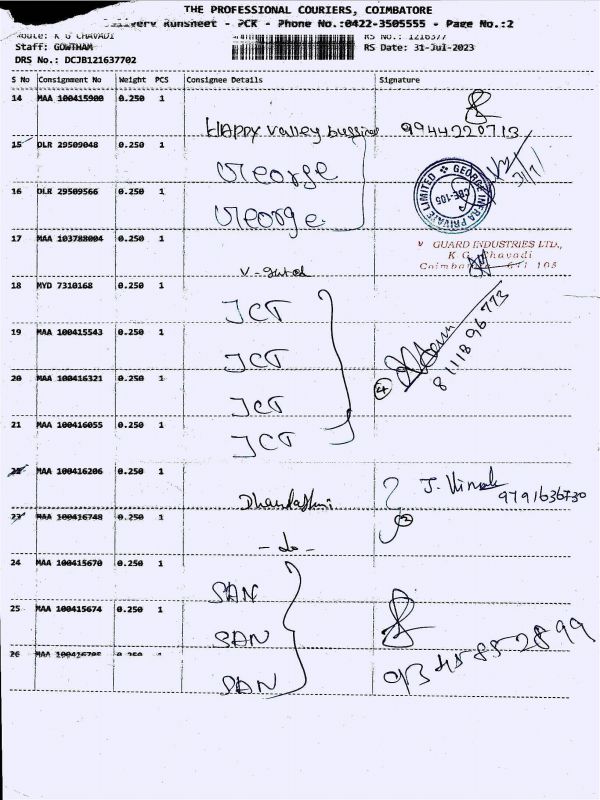 THE PROFESSIONAL COURIERS, COIMBATORE
Delivery Runsheet - PCK - Phone No.:0422-3505555 - Page No.:2
Route: K G CHAVADI
RS No.: 1216377
Staff: GOWTHAM
RS Date: 31-Jul-2023
DRS No.: DCJB121637702
S No Consignment No Weight PCS Consignee Details Signature
14 MAA 100415900 0.250 1
HAPPY valley 9944220713
15 DLR 29509048 0.250 1
George
16 DLR 29509566 0.250 1
George
GEORGE INFRA PRIVATE LIMITED
CBE-105
31/7/
17 MAA 103788004 0.250 1
V-guard
V GUARD INDUSTRIES LTD.,
K G Chavadi
Coimbatore 641 105
18 MYD 7310168 0.250 1
JCT
19 MAA 100415543 0.250 1
JCT
8111896773
20 MAA 100416321 0.250 1
JCT
4
21 MAA 100416055 0.250 1
JCT
22 MAA 100416206 0.250 1
J. 9791636730
23 MAA 100416748 0.250 1
2
- do -
24 MAA 100415670 0.250 1
SAN
25 MAA 100415674 0.250 1
SAN
9345852899
26 MAA 0.250 1
SAN